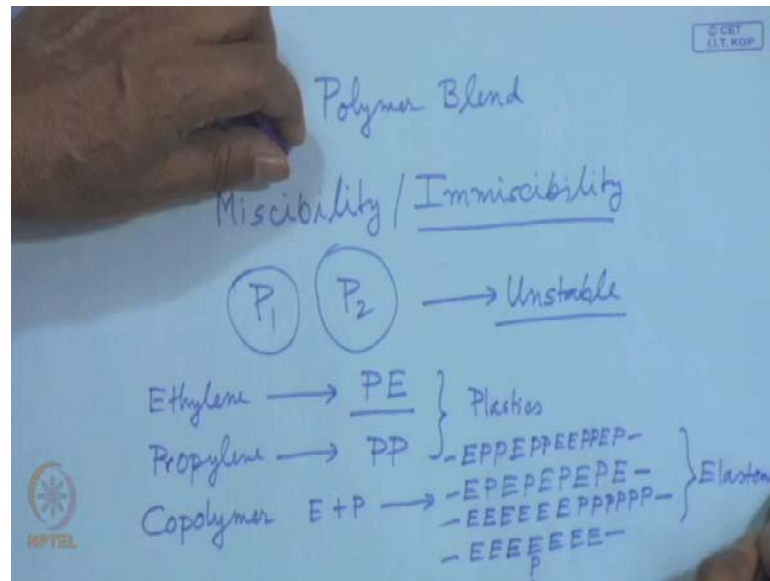 © CET
I.I.T. KGP
Polymer Blend
Miscibility / Immiscibility
P1 P2 → Unstable
Ethylene → PE } Plastics
Propylene → PP
-EPPEPPEEPPEP-
Copolymer E+P → -EPEPEPEPE- } Elastom
-EEEEEEPPPPPP-
-EEEEEEE-
P
NPTEL